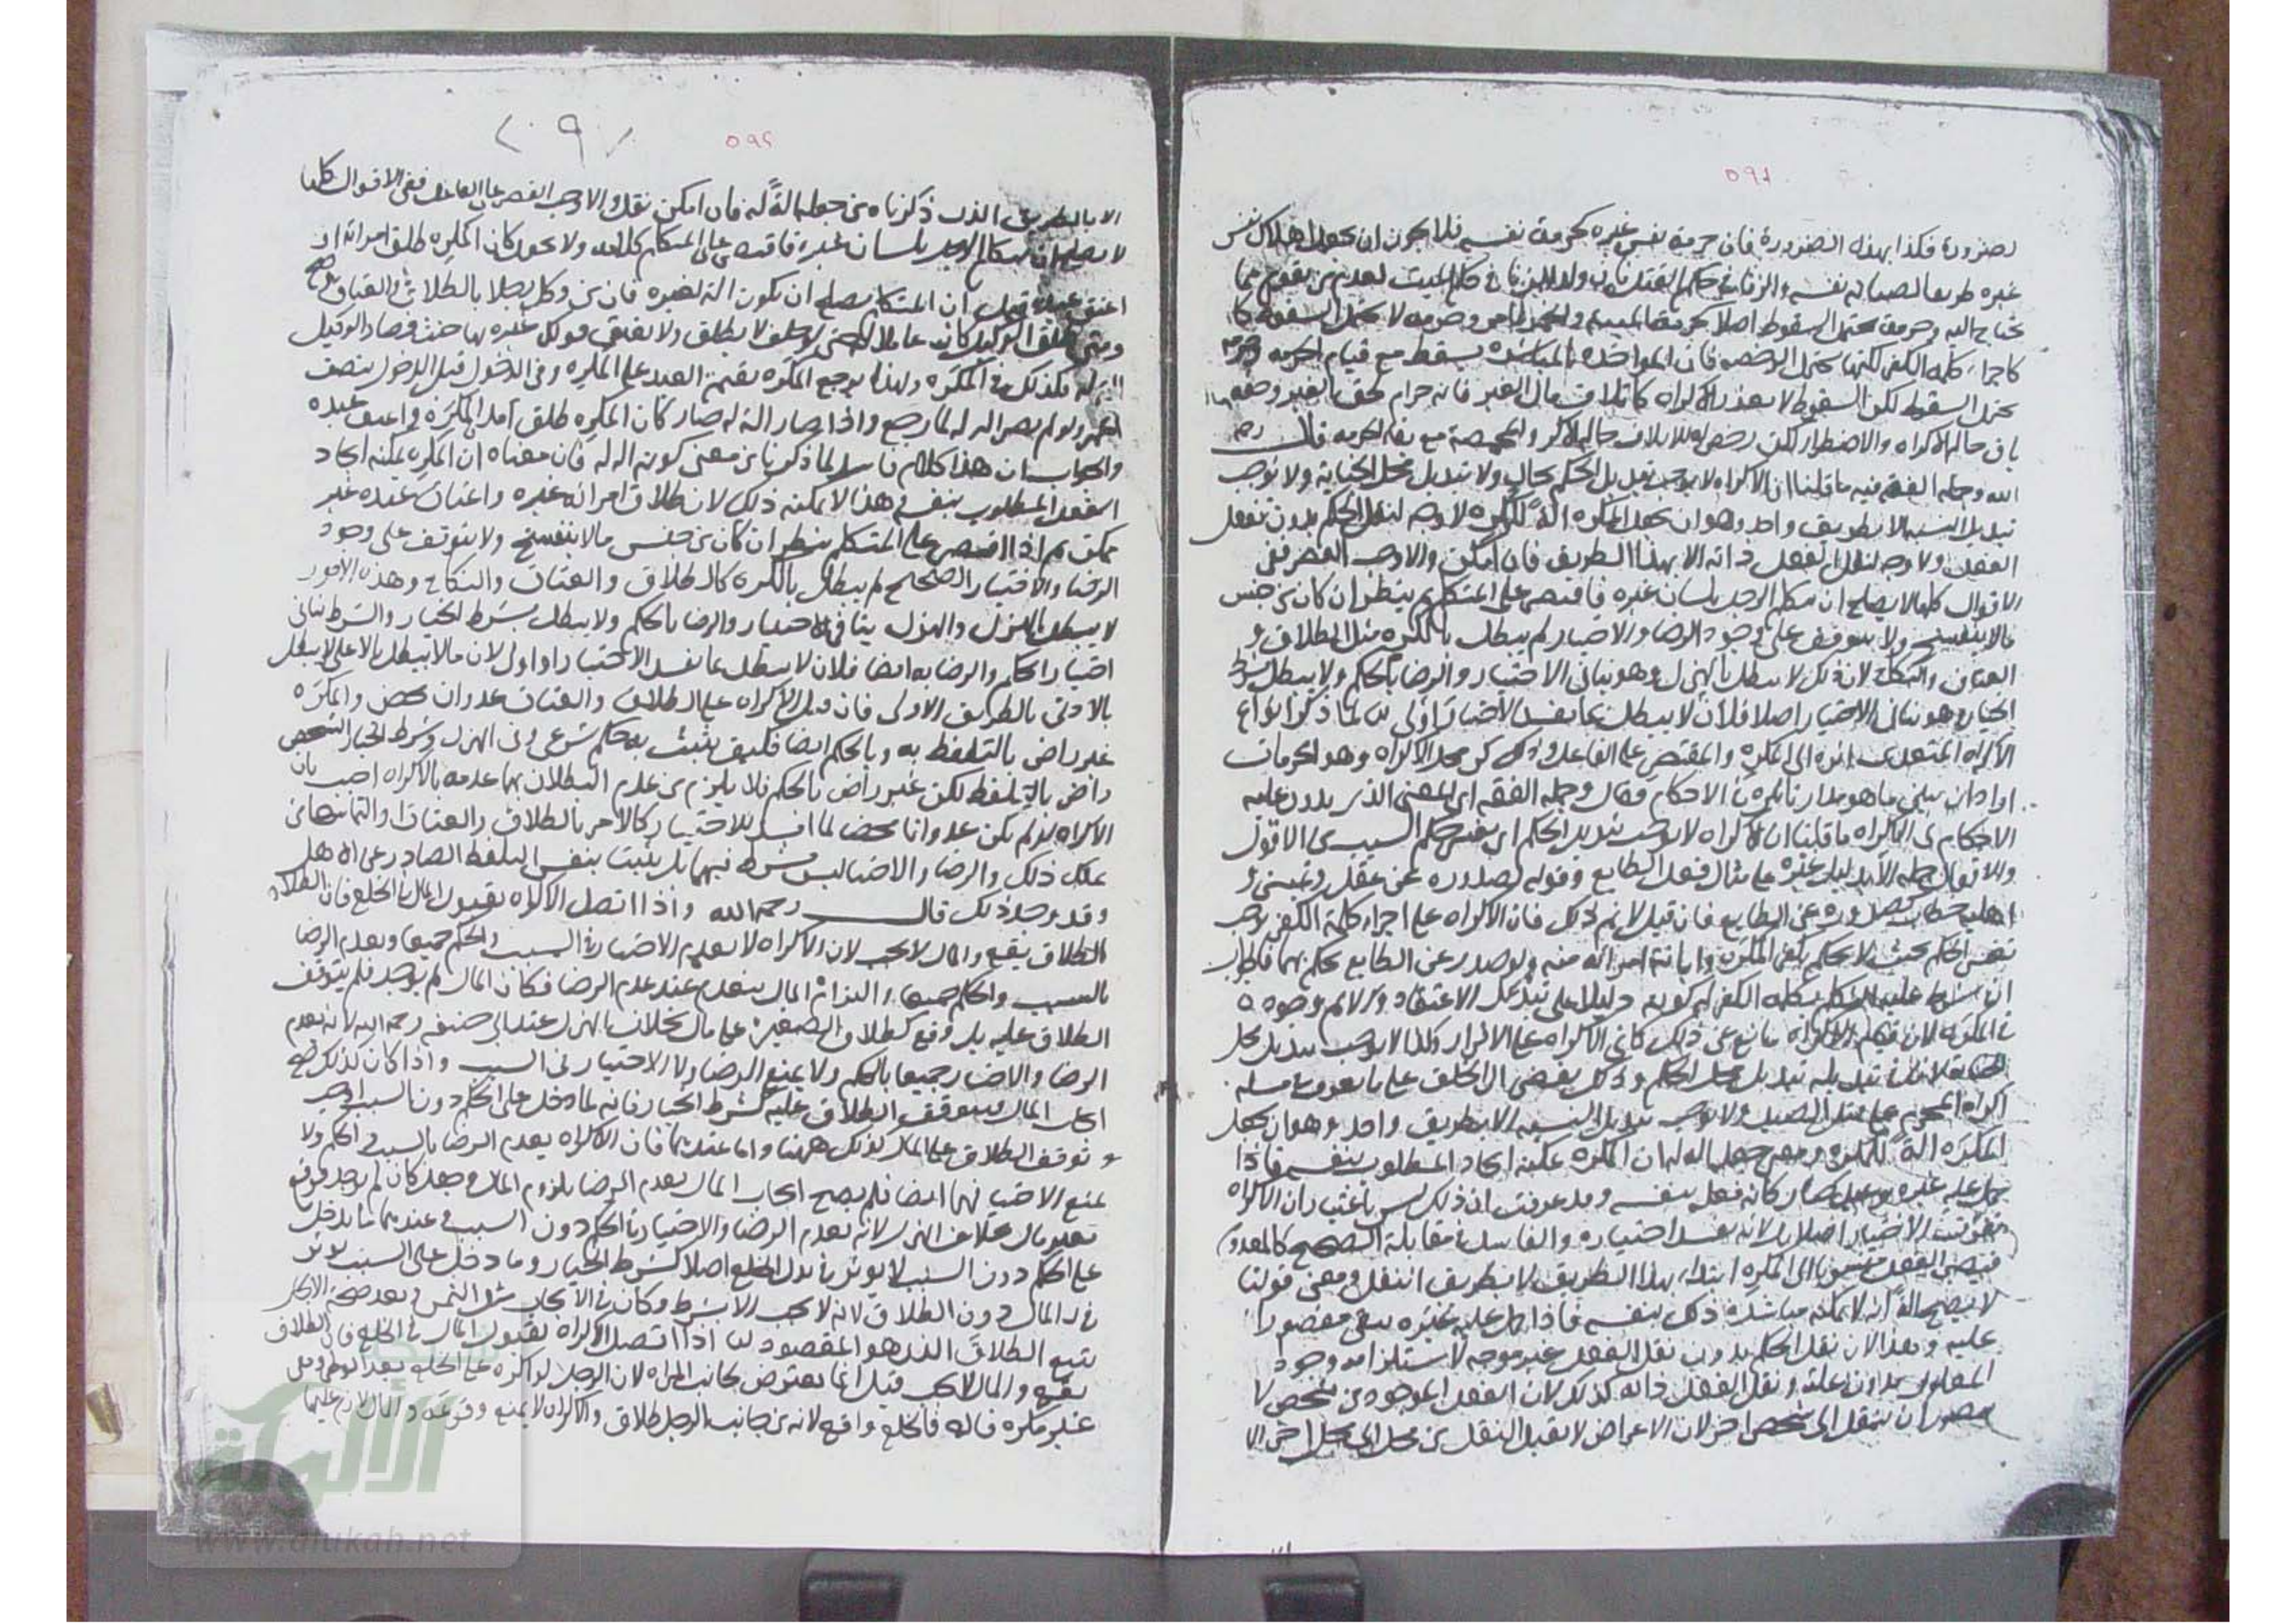 ٥٩١
لضرورة فكذا بهذه الضرورة فان حرمة نفس غيره كحرمة نفسه فلا يجوز ان يجعل اهلاك نفس
غيره طريقا لصيانة نفسه والزنا في حكم القتل لان ولد الزنا في حكم الميت لعدم من يقوم بما
يحتاج اليه وحرمة تحتمل السقوط اصلا كحرمة الميتة والخمر وحرمة لا تحتمل السقوط
كاجراء كلمة الكفر لكنها تحتمل الرخصة فان المواخذة يسقط مع قيام الحرمة وحرمة
تحتمل السقوط لكن السقوط لا بعذر الاكراه كاتلاف مال الغير فانه حرام لحق الغير
حالة الاكراه والاضطرار لكن رخص حالة الاكراه والمخمصة مع بقاء الحرمة قال رحمه
الله وجملة الفقه فيه ما قلنا ان الاكراه لا يوجب تبديل الحكم بحال ولا تبديل محل الجناية ولا يوجب
تبديل النسبة الا بطريق واحد وهو ان يجعل المكره الة للمكره لا وجه لنقل الحكم بدون نقل
الفعل ولا وجه لنقل الفعل ذاته الا بهذا الطريق فان امكن والا وجب القصر ففي
الاقوال كلها لا يصلح ان يتكلم الرجل بلسان غيره فاقتصر على المتكلم ثم ينظر ان كان من جنس
مالا ينفسخ ولا يتوقف على وجود الرضا والاختيار لم يبطل بالكره مثل الطلاق و
العتاق والنكاح لان ذلك لا يبطل بالهزل وهو ينافي الاختيار والرضا بالحكم ولا يبطل بشرط
الخيار وهو ينافي الاختيار اصلا فلان لا يبطل بما يفسد الاختيار اولى لما ذكر انواع
الاكراه المتعدي اثره الى المكره والمقتصر على الفاعل وذكر محل الاكراه وهو الحرمات
اراد ان يبين ما هو مدار الاحكام فقال وجملة الفقه اي المعنى الذي يدور عليه
الاحكام في الاكراه ما قلنا ان الاكراه لا يوجب تبديل الحكم اي نفس حكم السبب من الاقوال
والافعال على مثال فعل الطايع وقوله لصدوره عن عقل وتمييز و
اهلية خطاب كصدوره عن الطايع فان قيل لا نم ذلك فان الاكراه على اجراء كلمة الكفر يوجب
تغير الحكم بحيث لا يحكم بكفر المكره وابانة امراته منه ولو صدر عن الطايع يحكم بهما
بكلمة الكفر لم كونه دليلا على تبدل الاعتقاد ولا نم وجوده
في المكره لان قيام الاكراه مانع عن ذلك كما في الاكراه على الاقرار وكذا لا يوجب تبديل محل
الجناية لان في تبديله تبديل محل الحكم على ما يعرف في مسئلة
اكراه المحرم على قتل الصيد ولا يوجب تبديل النسبة الا بطريق واحد وهو ان يجعل
المكره الة للمكره ومعنى جعله الة له ان المكره يمكنه ايجاد المطلوب بنفسه فاذا
حمل عليه غيره صار كانه فعله بنفسه وقد عرفت ان ذلك ليس باعتبار ان الاكراه
تفويت الاختيار اصلا بل لانه يفسد اختياره والفاسد في مقابلة الصحيح كالمعدوم
فيصير الفعل منسوبا الى المكره ابتداء بهذا الطريق لا بطريق النقل ومعنى قولنا
لا يصلح الة انه لا يمكنه مباشرة ذلك بنفسه فاذا حمل عليه غيره يبقى مقصورا
عليه وهذا لان نقل الحكم بدون نقل الفعل غير موجه لاستلزامه وجود
المعلول بدون علته ونقل الفعل ذاته كذلك لان الفعل الموجود من شخص لا
يتصور ان ينتقل الى شخص اخر لان الاعراض لا تقبل النقل من محل الى محل اخر الا
٥٩٢
الا بالطريق الذي ذكرناه من جعله الة له فان امكن نقل والا وجب القصر على الفاعل ففي الاقوال كلها
لا يصلح ان يتكلم الرجل بلسان غيره فاقتصر على المتكلم ولا يجعل كان المكره طلق امراته او
اعتق عبده قيل ان المتكلم يصلح ان يكون الة لغيره فان من وكل رجلا بالطلاق والعتاق صح
ومتى طلق الوكيل كان عاملا حتى لو حلف لا يطلق ولا يعتق فوكل غيره بهما حنث فصار الوكيل
فكذلك في المكره ولهذا يرجع المكره بقيمة العبد على المكره وفي الدخول قبل الدخول بنصف
المهر ولو لم يصر الة له لما رجع واذا صار الة له صار كان المكره طلق امراة المكره واعتق عبده
والجواب ان هذا كلام فاسد لما ذكرنا من معنى كونه الة له فان معناه ان المكره يمكنه ايجاد
الفعل المطلوب بنفسه في هذا لا يمكنه ذلك لان طلاق امراة غيره واعتاق عبده غير
ممكن ثم اذا اقتصر على المتكلم ينظر ان كان من جنس مالا ينفسخ ولا يتوقف على وجود
الرضا والاختيار الصحيح لم يبطل بالكره كالطلاق والعتاق والنكاح وهذه الامور
لا يبطل بالهزل والهزل ينافي الاختيار والرضا بالحكم ولا يبطل بشرط الخيار والشرط ينافي
اختيار الحكم والرضا به ايضا فلان لا يبطل بما يفسد الاختيار اولى لان مالا يبطل بالاعلى لا يبطل
بالادنى بالطريق الاولى فان قيل الاكراه على الطلاق والعتاق عدوان محض والمكره
غير راض بالتلفظ به وبالحكم ايضا فكيف يثبت به حكم شرعي وفي الهزل وشرط الخيار الشخص
راض بالتلفظ لكن غير راض بالحكم فلا يلزم من عدم البطلان بهما عدمه بالاكراه اجيب بان
الاكراه لو لم يكن عدوانا محضا لما افسد الاختيار كالامر بالطلاق والعتاق
ذلك والرضا والاختيار ليس بشرط فيهما بل يثبت بنفس التلفظ الصادر عن الاهل
وقد وجد ذلك قال رحمه الله واذا اتصل الاكراه بقبول المال في الخلع فان
الطلاق يقع والمال لا يجب لان الاكراه لا يعدم الاختيار في السبب والحكم جميعا ويعدم الرضا
بالسبب والحكم جميعا والتزام المال ينعدم عند عدم الرضا فكان المال لم يوجد فلم يتوقف
الطلاق عليه بل وقع كطلاق الصغيرة على مال بخلاف الهزل عند ابي حنيفة رحمه الله لانه يعدم
الرضا والاختيار جميعا بالحكم ولا يمنع الرضا ولا الاختيار في السبب واذا كان كذلك صح
ايجاب المال فيتوقف الطلاق عليه كشرط الخيار فانه لما دخل على الحكم دون السبب اوجب
توقف الطلاق على المال كذلك ههنا واما عندهما فان الاكراه يعدم الرضا بالسبب والحكم ولا
يمنع الاختيار فيهما ايضا فلم يصح ايجاب المال لعدم الرضا بلزوم المال وجعل كان لم يوجد فوقع
بغير مال بخلاف الهزل لانه يعدم الرضا والاختيار في الحكم دون السبب فعندهما ما يدخل
على الحكم دون السبب لا يؤثر في بدل الخلع اصلا كشرط الخيار وما دخل على السبب يؤثر
في المال دون الطلاق لانه لا يجب الا بشرط وكان في الايجاب مثل الثمن وبعد صحة الايجاب
يتبع الطلاق الذي هو المقصود اذا اتصل الاكراه بقبول المال في الخلع فان الطلاق
يقع والمال لا يجب قيل انما يعترض بجانب المراة لان الرجل لو اكره على الخلع بعد الوطي وهي
غير مكرهة فالخلع واقع لانه من جانب الرجل طلاق والاكراه لا يمنع وقوعه والمال لازم عليها
الألوكة
www.alukah.net